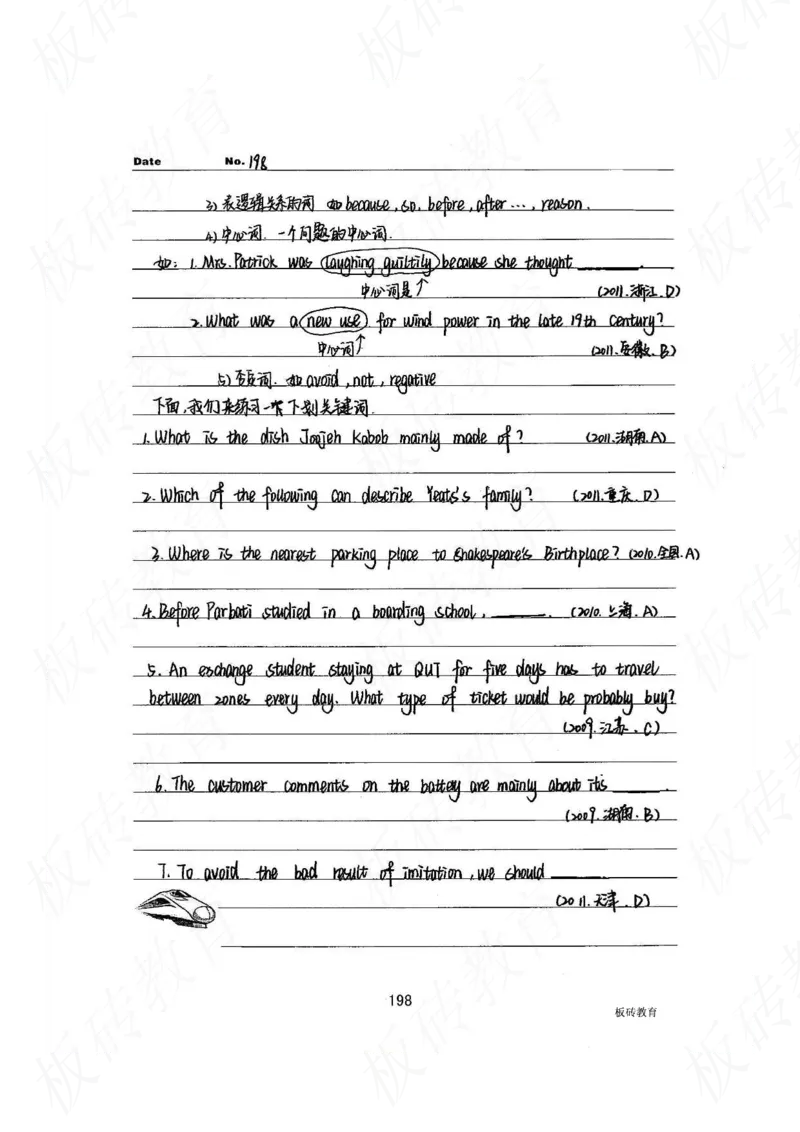 Date No. 198
3) 表逻辑关系的词 如 because, so, before, after …, reason.
4) 中心词. 一个问题的中心词.
如: 1. Mrs. Patrick was laughing guiltily because she thought ______.
中心词是↑ (2011.浙江.D)
2. What was a new use for wind power in the late 19th century?
中心词↑ (2011.安徽.B)
5) 否定词. 如 avoid, not, regative
下面,我们来练习一下下划关键词.
1. What is the dish Joojeh Kabob mainly made of? (2011.湖南.A)
2. Which of the following can describe Yeats's family? (2011.重庆.D)
3. Where is the nearest parking place to Shakespeare's Birthplace? (2010.全国.A)
4. Before Parbati studied in a boarding school, ______. (2010.上海.A)
5. An exchange student staying at QUT for five days has to travel
between zones every day. What type of ticket would be probably buy?
(2009.江苏.C)
6. The customer comments on the battey are mainly about its ______.
(2009.湖南.B)
7. To avoid the bad result of imitation, we should ______
(2011.天津.D)
198
板砖教育